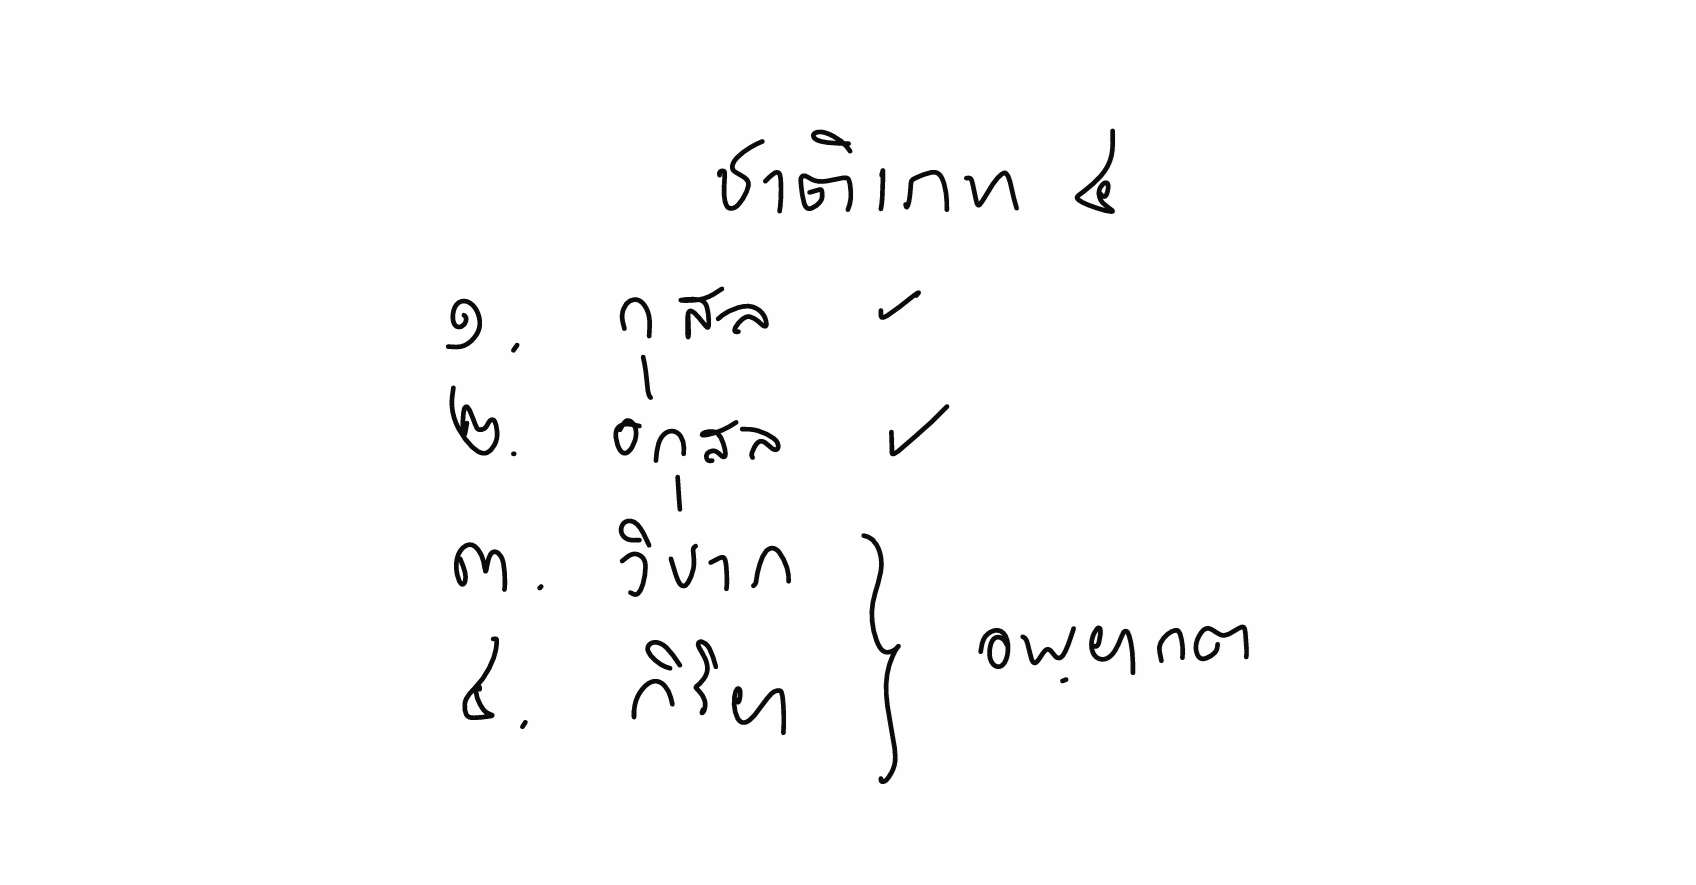 ชาติเภท ๔
๑. กุสล ✓
๒. อกุสล ✓
๓. วิบาก
๔. กิริยา
อพฺยากต